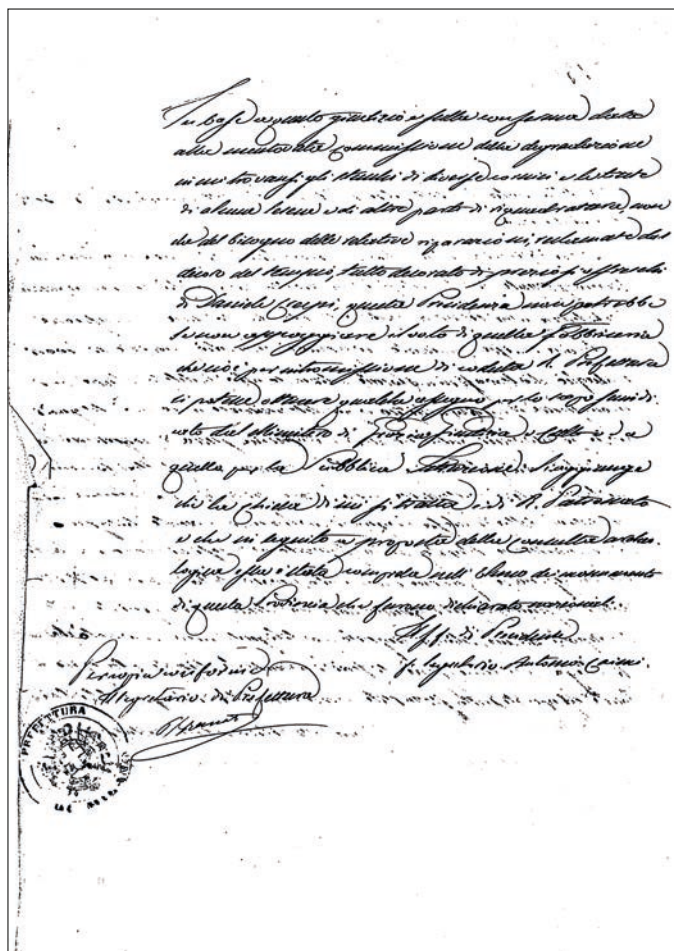 In base a questo giudizio e sulla conferma data
alla mentovata commissione della degradazione
in cui trovansi gli stucchi di diverse cornici e le teste
di alcune lesene e di altre parti di riquadrature, non
che del bisogno delle relative riparazioni, reclamate dal
decoro del tempio, tutto decorato di preziosi affreschi
di Daniele Crespi, questa Presidenza non potrebbe
se non appoggiare il voto di quella Fabbriceria
che cioè per intromissione di codesta R. Prefettura
si potesse ottenere qualche assegno per lo scopo
cato dal Ministero di Grazia Giustizia e Culti e da
quello per la Pubblica Istruzione. Si aggiunge
che la chiesa di cui si tratta è di R. Patronato
e che in seguito a proposta della Consulta archeo-
logica essa è stata compresa nell'Elenco dei monumenti
di questa Provincia che furono dichiarati nazionali.
Il ff. di Presidente
f. Antonio Caimi.
Per copia conforme
Il Segretario di Prefettura
PREFETTURA